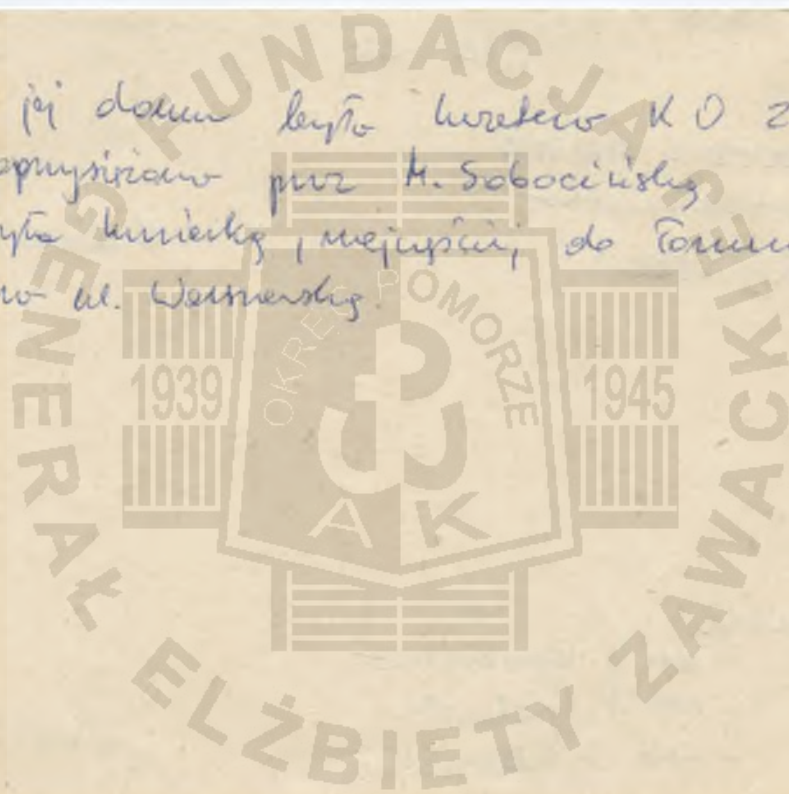 jej domu było KO z
zaprzysiężono przez M. Sobocińską
była kurierką, najczęściej do Torun
ul. Warszawską.
FUNDACJA GENERAŁ ELŻBIETY ZAWACKIEJ
OKRĘG POMORZE
1939 1945
A K